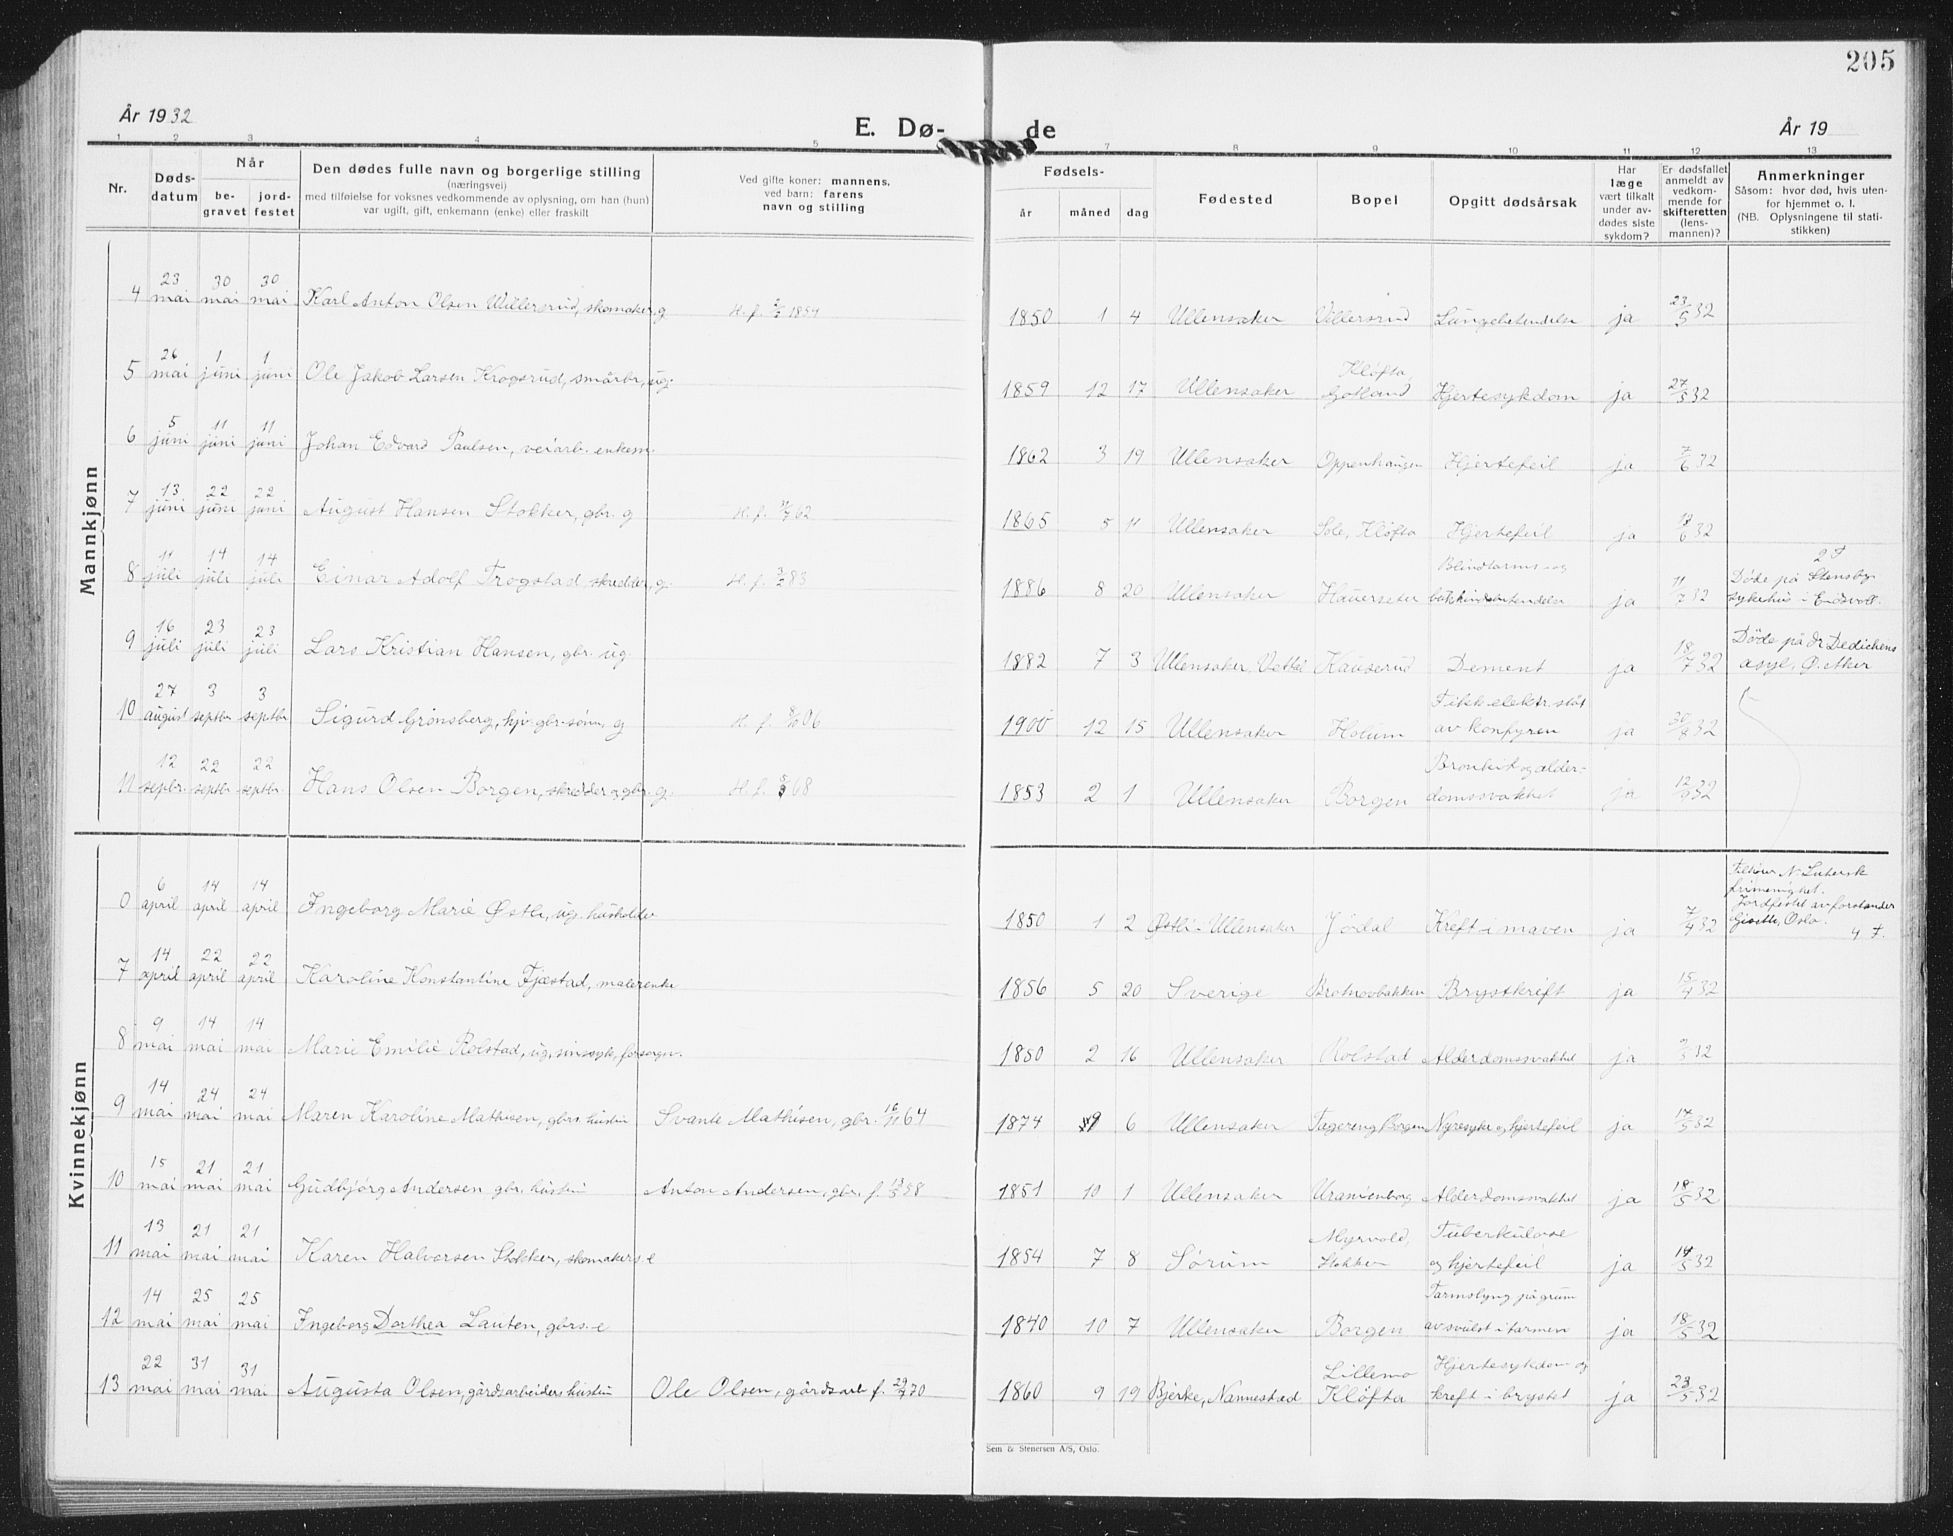 205
År 1932
E. Dø-
de
År 19
1 2 3 4 5 7 8 9 10 11 12 13
Nr.
Døds-
datum
Når
be-
gravet
jord-
festet
Den dødes fulle navn og borgerlige stilling
(næringsvei)
med tilføielse for voksnes vedkommende av oplysning, om han (hun)
var ugift, gift, enkemann (enke) eller fraskilt
Ved gifte koner: mannens,
ved barn: farens
navn og stilling
Fødsels-
år måned dag
Fødested
Bopel
Opgitt dødsårsak
Har
læge
vært tilkalt
under av-
dødes siste
sykdom?
Er dødsfallet
anmeldt av
vedkom-
mende for
skifteretten
(lens-
mannen)?
Anmerkninger
Såsom: hvor død, hvis uten-
for hjemmet o. l.
(NB. Oplysningene til stati-
stikken)
Mannkjønn
4 23 mai 30 mai 30 mai Karl Anton Olsen Willersrud, skomaker, g H. f. 1854 1850 1 4 Ullensaker Villersrud Lungebetendelse ja 23/5 32
5 26 mai 1 juni 1 juni Ole Jakob Larsen Krogsrud, småbr., ug. 1859 12 17 Ullensaker Kløfta, Gotland Hjertesykdom ja 27/5 32
6 5 juni 11 juni 11 juni Johan Edvard Paulsen, veiarb. enkem. 1862 3 19 Ullensaker Oppenhaugen Hjertefeil ja 7/6 32
7 13 juni 22 juni 22 juni August Hansen Stokker, gbr. g H. f. 62 1865 5 11 Ullensaker Sole, Kløfta Hjertefeil ja 18/6 32
8 11 juli 14 juli 14 juli Einar Adolf Trogstad, skredder, g. H. f. 83 1886 8 20 Ullensaker Hauerseter Blindtarms- og bukhindebetendelse ja 11/7 32 2 F
Døde på Stensby sykehus i Eidsvoll.
9 16 juli 23 juli 23 juli Lars Kristian Hansen, gbr. ug. 1882 7 3 Ullensaker, Vettal Kauserud Dement ja 18/7 32 Døde på dr. Dedichens asyl, Ø. Aker
10 27 august 3 septbr. 3 septbr. Sigurd Grønsberg, hjv. gbr. sønn, g H. f. 06 1900 12 15 Ullensaker Holum Fikk elektr. støt av komfyren ja 30/8 32
11 12 septbr. 22 septbr. 22 septbr. Hans Olsen Borgen, skredder og gbr. g. H. f. 68 1853 2 1 Ullensaker Borgen Bronkit og alder-
domssvakhet ja 12/9 32
Kvinnekjønn
0 6 april 14 april 14 april Ingeborg Marie Østli, ug. husholder 1850 1 2 Østli - Ullensaker Jødal Kreft i maven ja 7/4 32 Tilhører N. Lutersk
frimenighet.
Jordfestet av forstander
Oslo.
4 F.
7 14 april 22 april 22 april Karoline Konstantine Fjæstad, malerenke 1856 5 20 Sverige Brotnovbakken Brystkreft ja 15/4 32
8 9 mai 14 mai 14 mai Marie Emilie Rolstad, ug., sinssyk, forsørgn. 1850 2 16 Ullensaker Rolstad Alderdomssvakhet ja 9/5 32
9 14 mai 24 mai 24 mai Maren Karoline Mathisen, gbrs. hustru Svante Mathisen, gbr. 16/11 64 1874 9 6 Ullensaker Fagereng Borgen Nyresyke og hjertefeil ja 17/5 32
10 15 mai 21 mai 21 mai Gudbjørg Andersen gbr. hustru Anton Andersen, gbr. f. 58 1851 10 1 Ullensaker Uranienborg Alderdomssvakhet ja 18/5 32
11 13 mai 21 mai 21 mai Karen Halvorsen Stokker, skomakers e 1854 7 8 Sørum Myrvold, Stokker Tuberkulose og hjertefeil ja 14/5 32
12 14 mai 25 mai 25 mai Ingeborg Dorthea Lauten, gbrs. e 1840 10 7 Ullensaker Borgen Tarmslyng på grunn av svulst i tarmen ja 18/5 32
13 22 mai 31 mai 31 mai Augusta Olsen, gårdsarbeiders hustru Ole Olsen, gårdsarb. f. 70 1860 9 19 Bjerke, Nannestad Lillemo Kløfta Hjertesykdom og kreft i brystet ja 23/5 32
Sem & Stenersen A/S, Oslo.